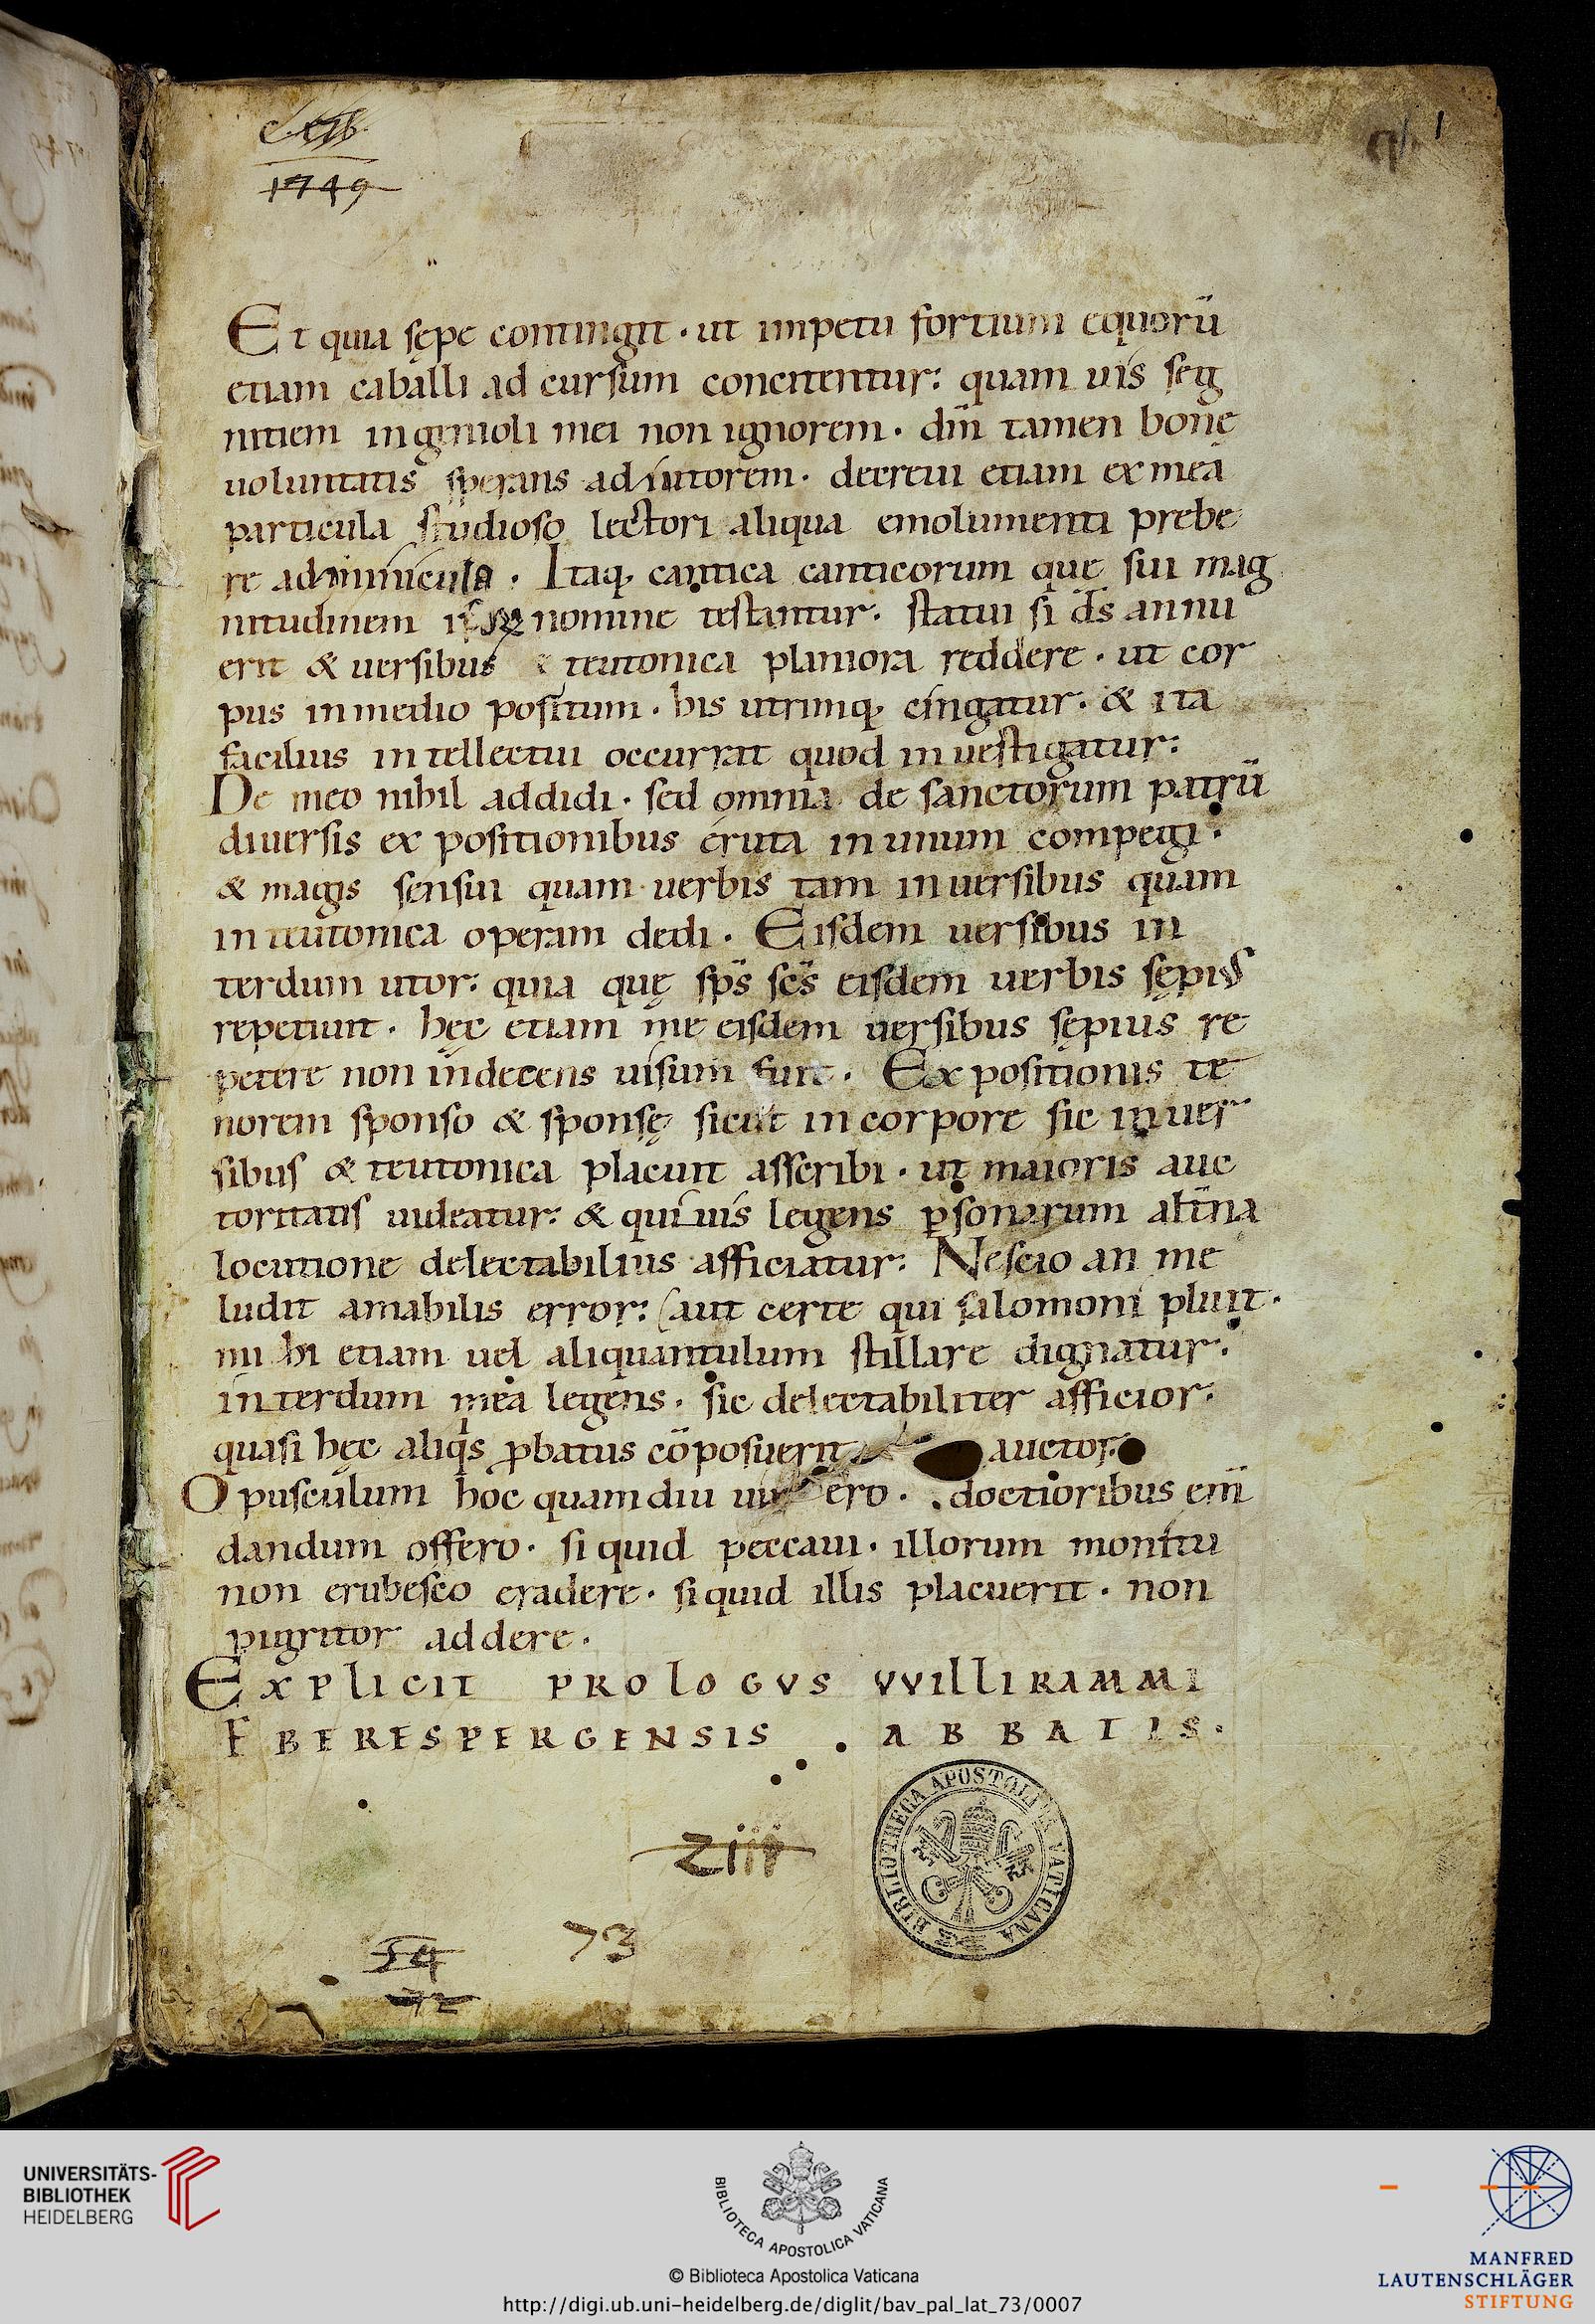 1749
1
Et quia sępe contingit · ut impetu fortium equorū
etiam caballi ad cursum concitentur: quam uis seg
nitiem ingenioli mei non ignorem · dn̄i tamen bonę
uoluntatis sperans adiutorem · decreui etiam ex mea
particula studioso lectori aliqua emolumenti prebe
re adminicula · Itaq; cantica canticorum que sui mag
nitudinem nomine testantur · statui si d̄s annu
erit & uersibus & teutonica planiora reddere · ut cor
pus inmedio positum · his utrimq; cingatur · & ita
facilius intellectui occurrat quod inuestigatur:
De meo nihil addidi · sed omnia de sanctorum patrū
diuersis expositionibus eruta inunum compegi ·
& magis sensui quam uerbis tam inuersibus quam
inteutonica operam dedi · Eisdem uersibus in
terdum utor: quia quę sp̄s sc̄s eisdem uerbis sępius
repetiuit · hęc etiam me eisdem uersibus sępius re
petere non indecens uisum fuit · Expositionis te
norem sponso & sponsę sicut incorpore sic inuer
sibus & teutonica placuit asscribi · ut maioris auc
toritatis uideatur: & quiuis legens p̱sonarum alt̄na
locutione delectabilius afficiatur: Nescio an me
ludit amabilis error: aut certe qui salomoni pluit ·
mihi etiam uel aliquantulum stillare dignatur ·
interdum mea legens · sic delectabiliter afficior ·
quasi hęc aliq̇s ꝓbatus cōposuerit auctor ·
Opusculum hoc quamdiu uixero · doctioribus em̄
dandum offero · si quid peccaui · illorum monitu
non erubesco eradere · siquid illis placuerit · non
pigritor addere ·
EXPLICIT PROLOGVS VVILLIRAMMI
EBERESPERGENSIS ABBATIS ·
BIBLIOTHECA APOSTOLICA VATICANA
73
54
72
UNIVERSITÄTS-
BIBLIOTHEK
HEIDELBERG
BIBLIOTECA APOSTOLICA VATICANA
© Biblioteca Apostolica Vaticana
http://digi.ub.uni-heidelberg.de/diglit/bav_pal_lat_73/0007
MANFRED
LAUTENSCHLÄGER
STIFTUNG